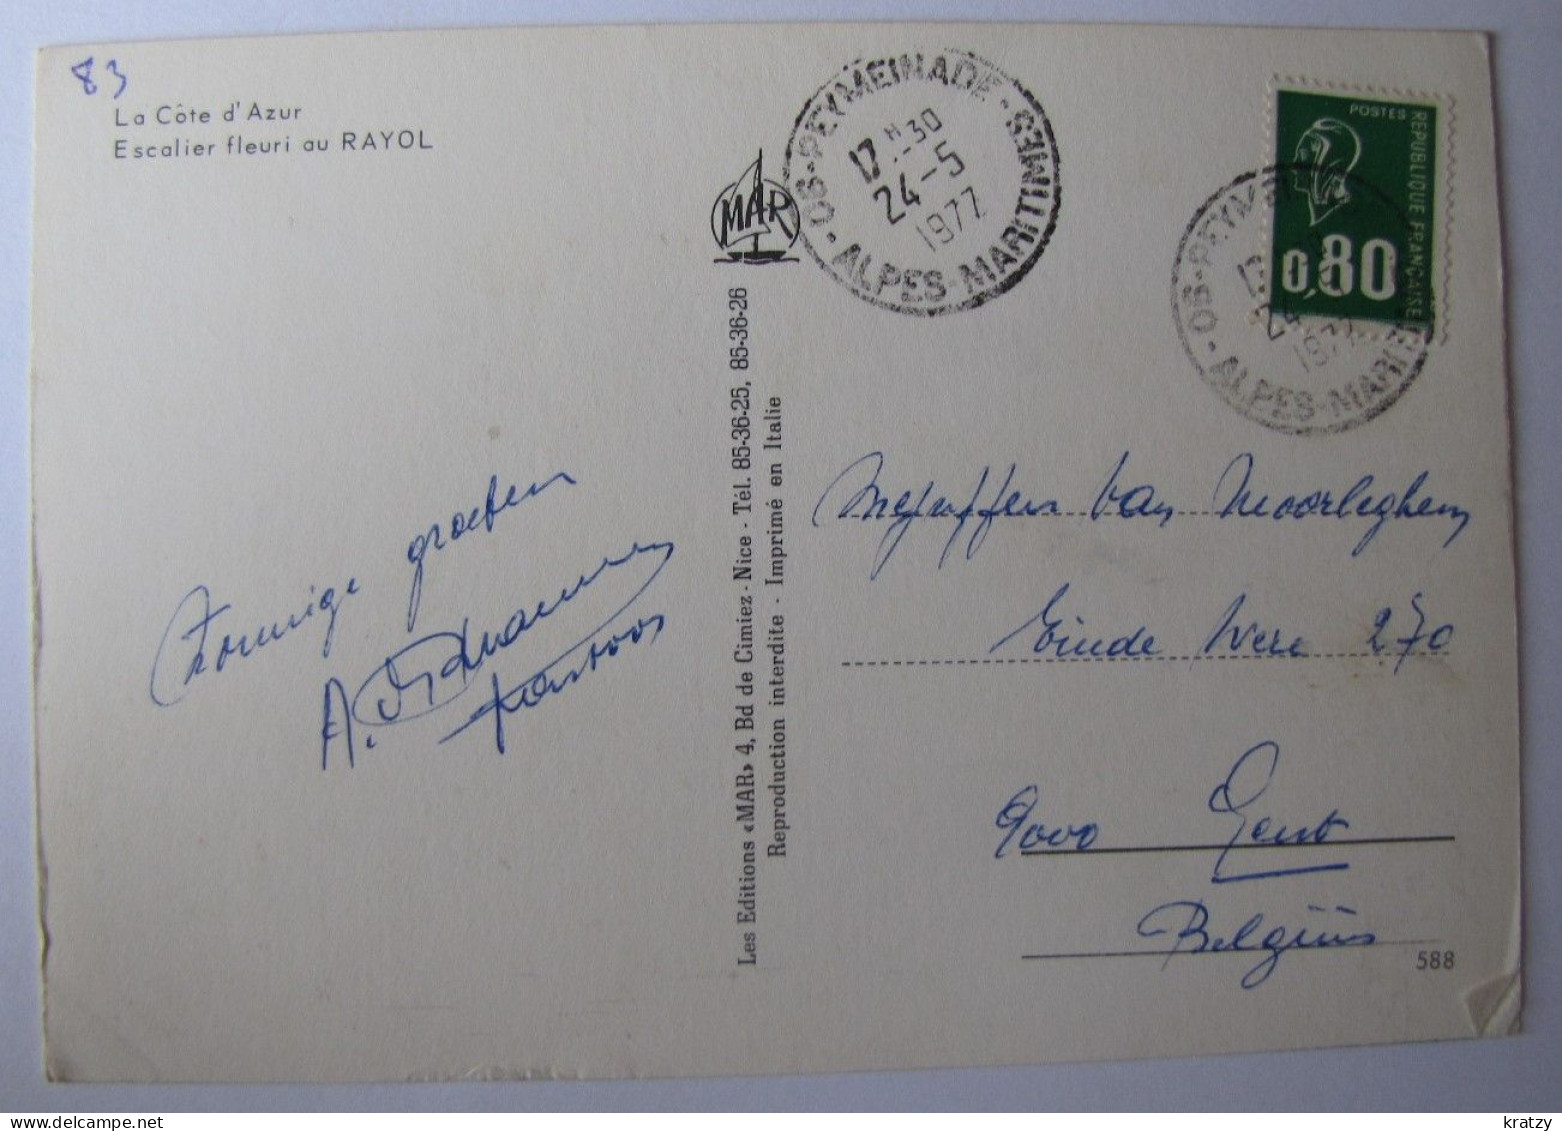 83
La Côte d'Azur
Escalier fleuri au RAYOL
MAR
06-PEYMEINADE-ALPES-MARITIMES
17 H-30
24-5
1977
POSTES
REPUBLIQUE FRANÇAISE
0,80
06-PEYM
ALPES-MARI
1977
Les Editions «MAR» 4, Bd de Cimiez - Nice - Tél. 85-36-25, 85-36-26
Reproduction interdite - Imprimé en Italie
Zonnige groeten
A.
Mejuffer Van Moorleghem
Einde Were 270
9000 Gent
Belgïus
588
www.delcampe.net
kratzy